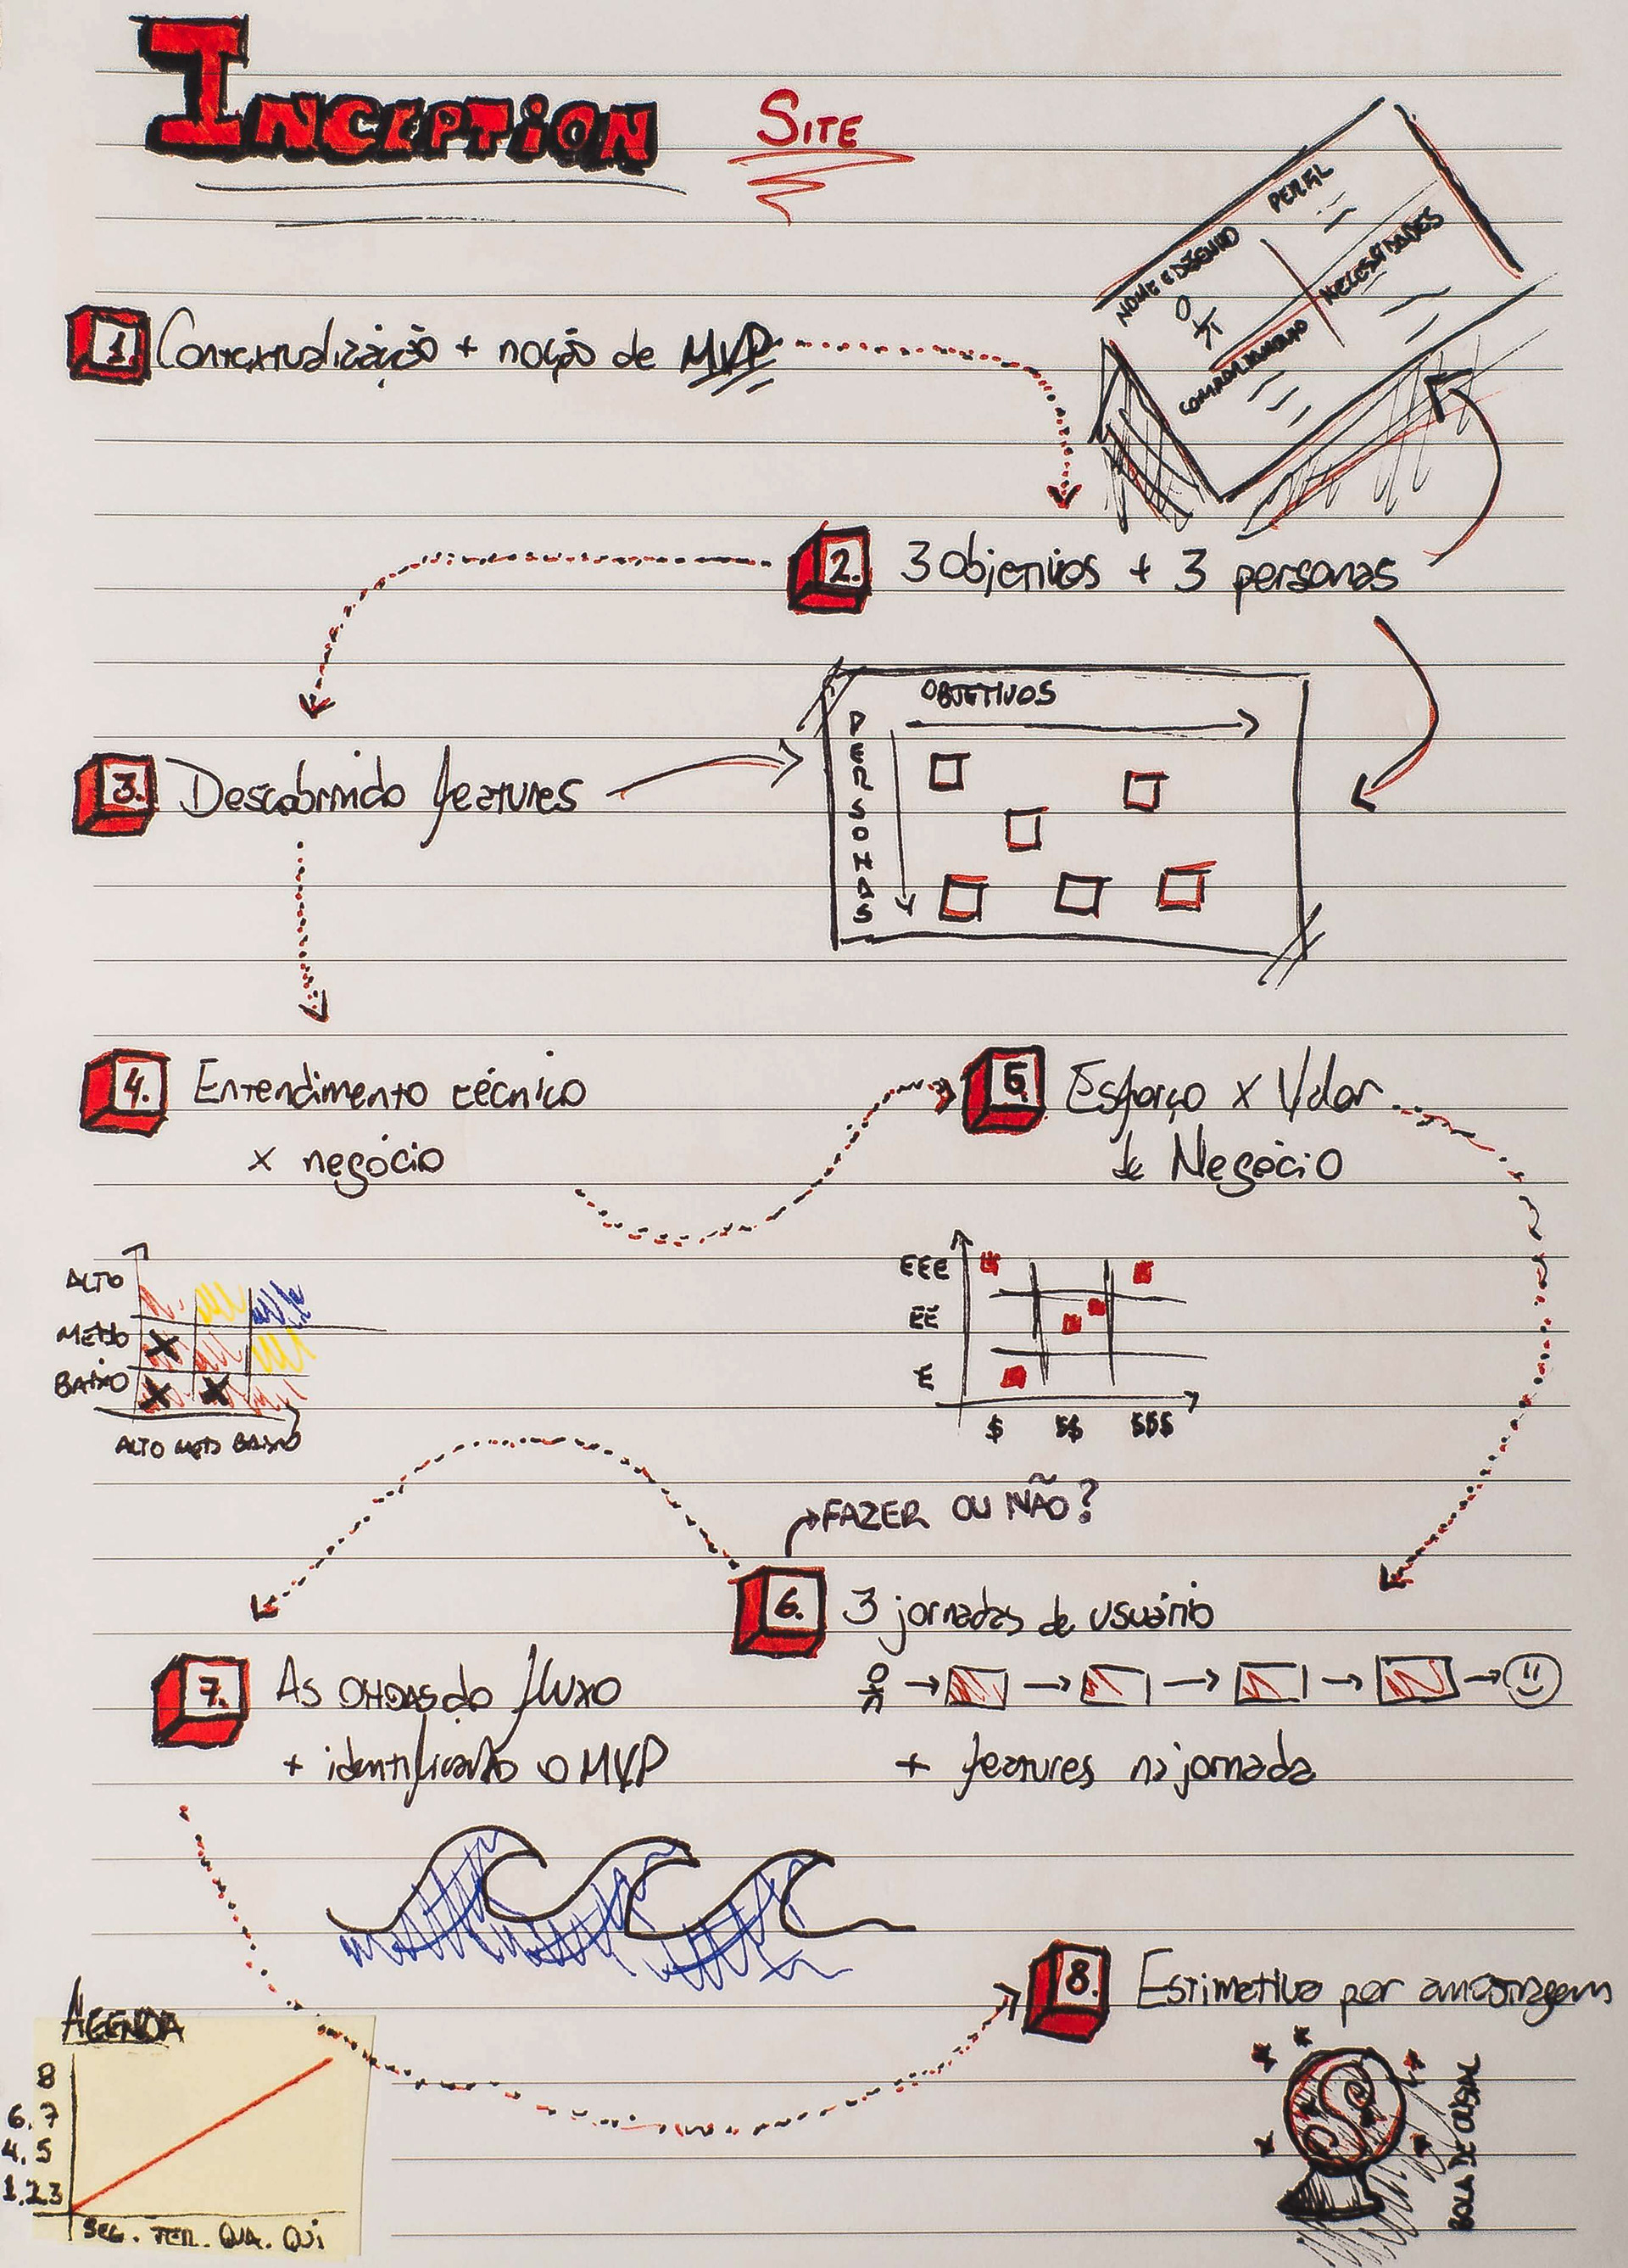 INCEPTION SITE
PERFIL
NOME E DESENHO
NECESSIDADES
COMPORTAMENTO
1. Contextualização + noção de MVP
2. 3 objetivos + 3 personas
OBJETIVOS
PERSONAS
3. Descobrindo features
4. Entendimento técnico
x negócio
5 Esforço x Valor
de Negócio
ALTO
MÉDIO
BAIXO
ALTO MÉD BAIXO
EEE
EE
E
$ $$ $$$
FAZER OU NÃO?
6. 3 jornadas de usuário
+ features na jornada
7. As ONDAS do fluxo
+ identificando o MVP
8. Estimativa por amostragem
BOLA DE CRISTAL
AGENDA
8
6,7
4,5
1,2,3
SEG. TER. QUA. QUI